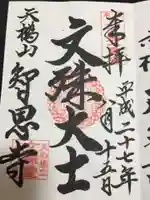 奉拝
平成二十七年
八月十五日
文殊大士
天橋山
智恩寺